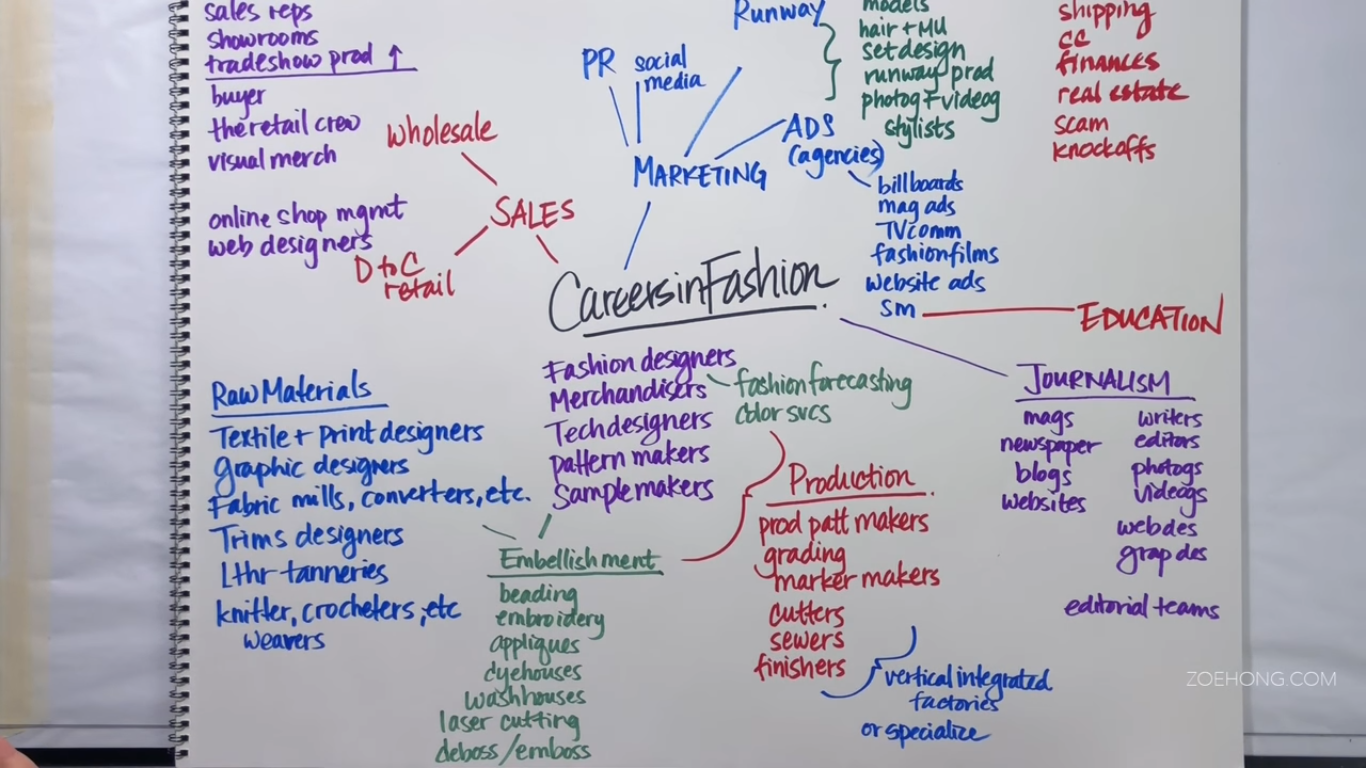 sales reps
showrooms
tradeshow prod ↑
buyer
the retail crew
visual merch
online shop mgmt
web designers
wholesale
SALES
D to C
retail
PR
social
media
Runway
MARKETING
ADS
(agencies)
models
hair + MU
set design
runway prod
photog + videog
stylists
billboards
mag ads
TV comm
fashion films
website ads
sm
EDUCATION
shipping
CC
finances
real estate
scam
knockoffs
Careers in Fashion
Fashion designers
Merchandisers
Tech designers
pattern makers
Sample makers
fashion forecasting
color svcs
Raw Materials
Textile + print designers
graphic designers
Fabric mills, converters, etc.
Trims designers
Lthr tanneries
knitter, crocheters, etc
weavers
Embellishment
beading
embroidery
appliques
dyehouses
washhouses
laser cutting
deboss/emboss
Production
prod patt makers
grading
marker makers
cutters
sewers
finishers
vertical integrated
factories
or specialize
JOURNALISM
mags
newspaper
blogs
websites
writers
editors
photogs
videogs
web des
grap des
editorial teams
ZOEHONG.COM